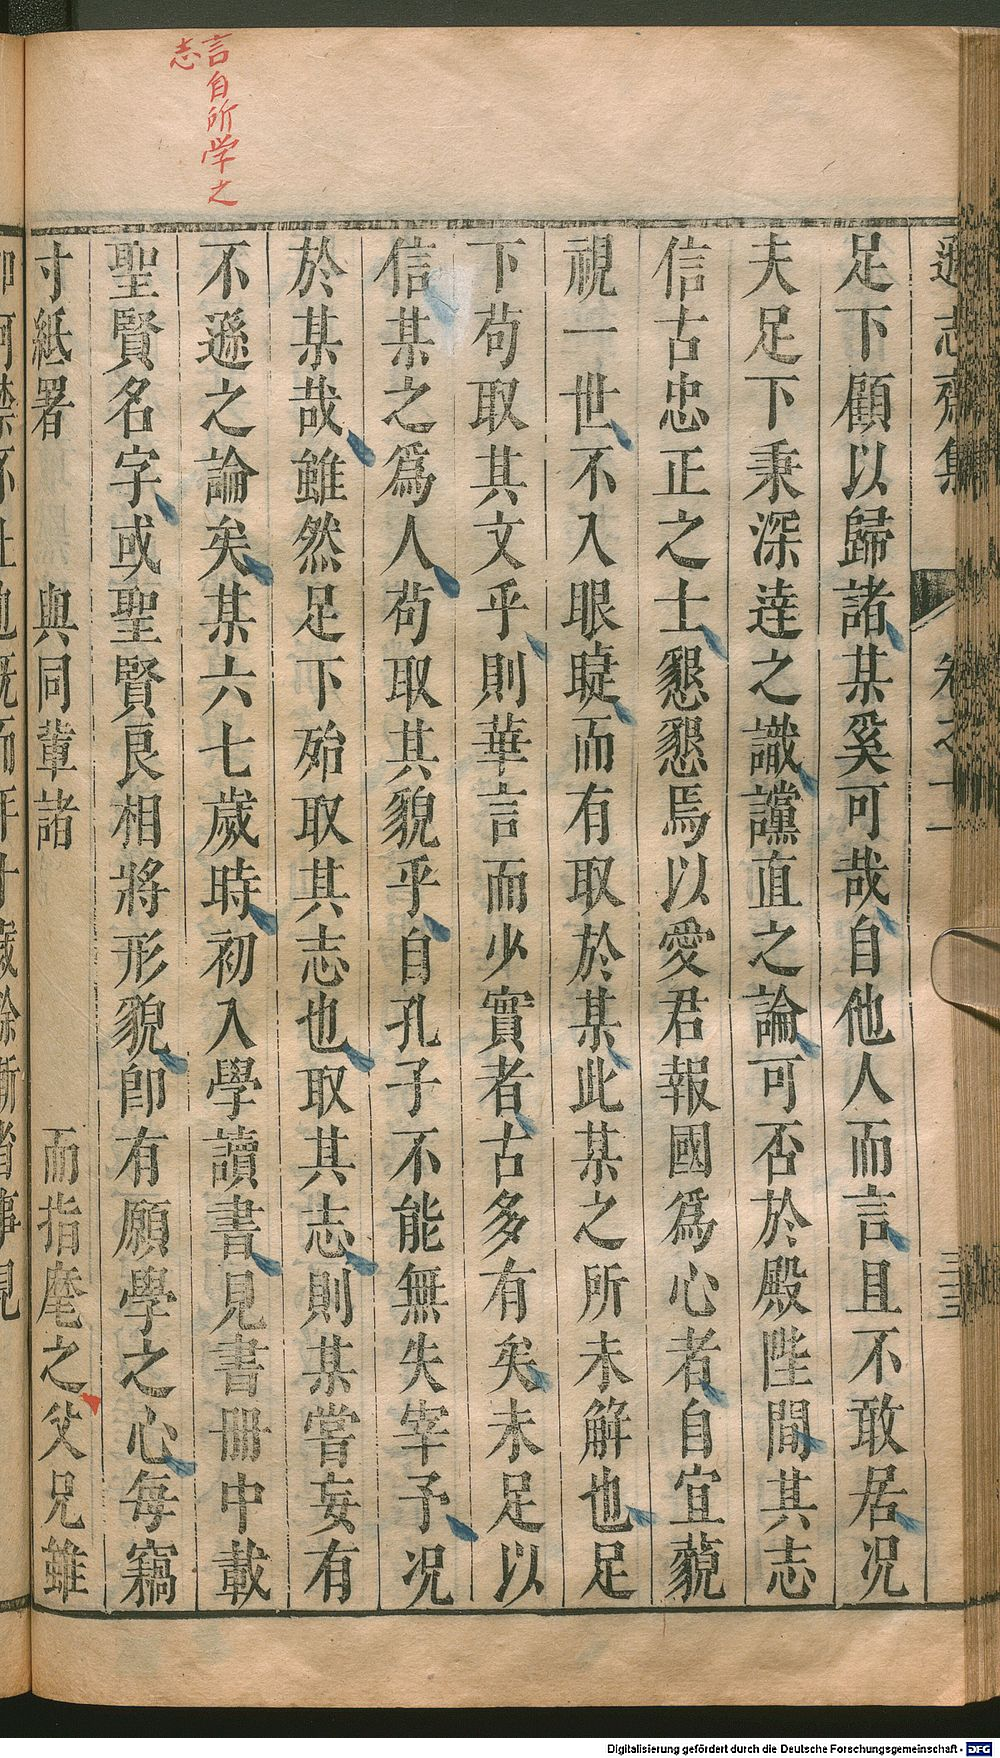 言自所学之
志
遜志齋集
卷之十一
三三
足下顧以歸諸某奚可哉自他人而言且不敢居况
夫足下秉深達之識讜直之論可否於殿陛間其志
信古忠正之士懇懇焉以愛君報國爲心者自宜藐
視一世不入眼睫而有取於某此某之所未解也足
下苟取其文乎則華言而少實者古多有矣未足以
信某之爲人苟取其貌乎自孔子不能無失宰予况
於某哉雖然足下殆取其志也取其志則某嘗妄有
不遜之論矣某六七歲時初入學讀書見書冊中載
聖賢名字或聖賢良相將形貌卽有願學之心每竊
寸紙署 與同輩諸 而指麾之父兄雖
Digitalisierung gefördert durch die Deutsche Forschungsgemeinschaft - DFG